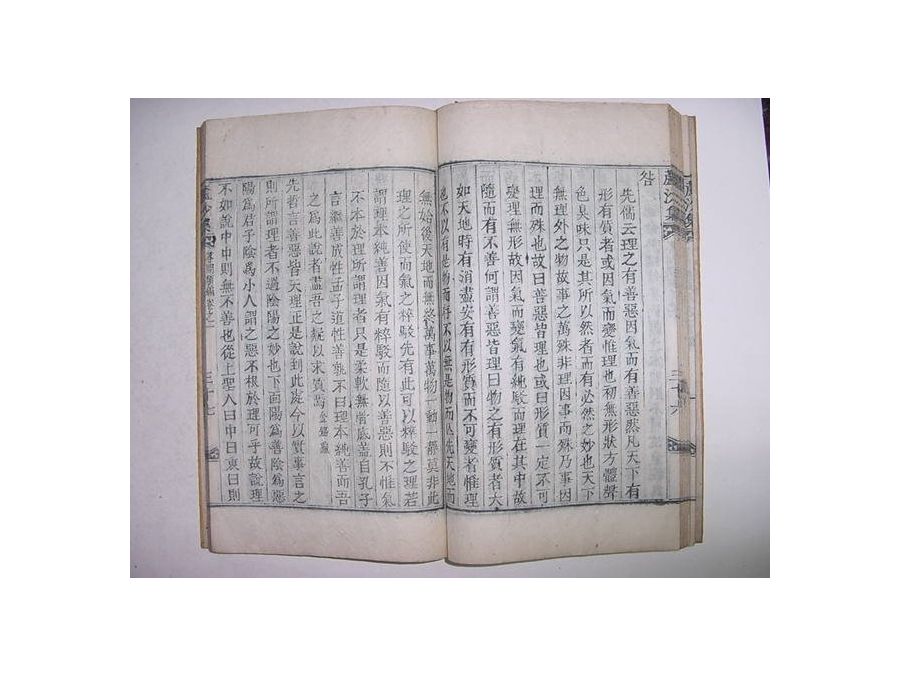 蘆沙集
三十六
答
先儒云理之有善惡因氣而有善惡然凡天下有
形有質者或因氣而變惟理也初無形狀方體聲
色臭味只是其所以然者而有必然之妙也天下
無理外之物故事之萬殊非理因事而殊乃事因
理而殊也故曰善惡皆理也或曰形質一定不可
變理無形故因氣而變氣有純駁而理在其中故
隨而有不善何謂善惡皆理曰物之有形質者大
如天地時有消盡安有有形質而不可變者惟理
也不以有是物而存不以無是物而亡先天地而
無始後天地而無終萬事萬物一動一靜莫非此
理之所使而氣之粹駁先有此可以粹駁之理若
謂理本純善因氣有粹駁而隨以善惡則不惟氣
不本於理所謂理者只是柔軟無骨底蓋自孔子
言繼善成性孟子道性善孰不曰理本純善而吾
之為此說者盡吾之疑以求質焉
先哲言善惡皆天理正是說到此處今以質事言之
則所謂理者不過陰陽之妙也下面陽為善陰為惡
陽為君子陰為小人謂之惡不根於理可乎故說理
不如說中中則無不善也從上聖人曰中曰衷曰則
蘆沙集
答問類編卷之一
三十七